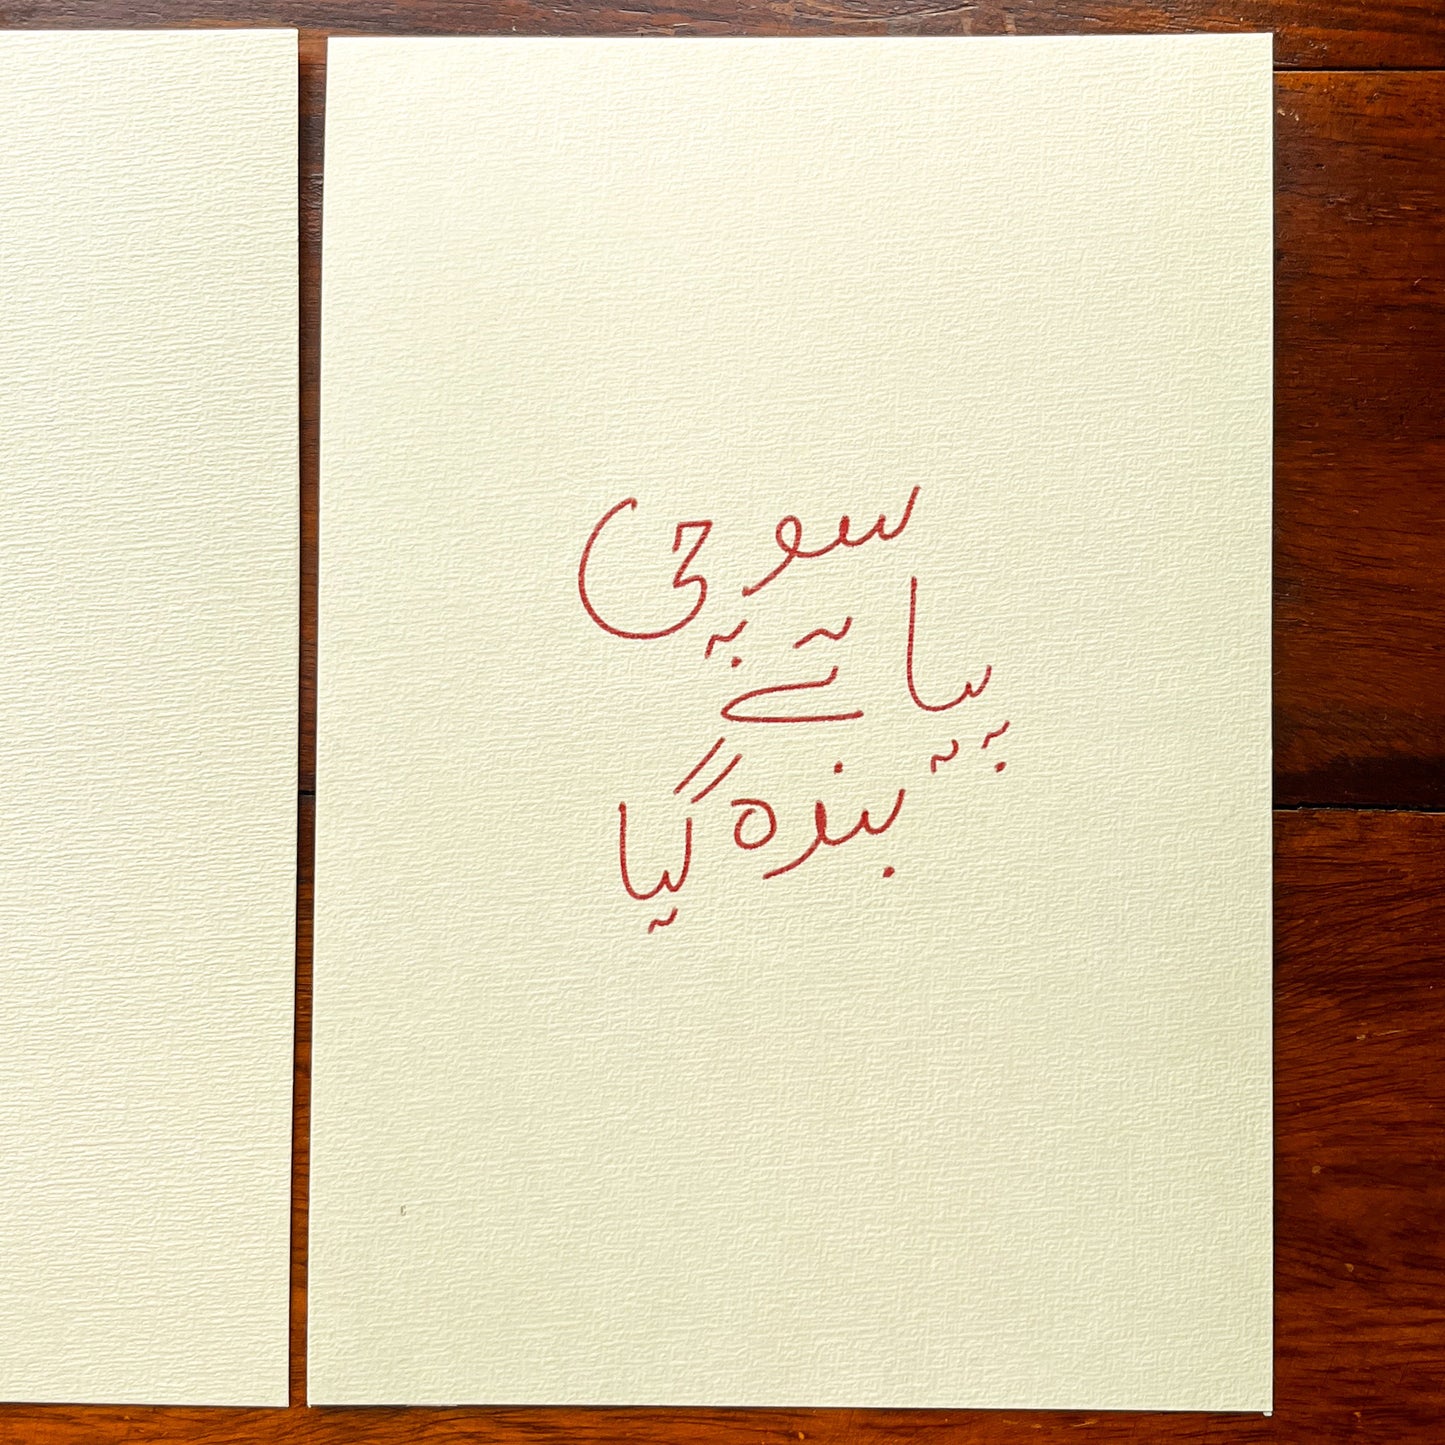 سوچی
پیا تے
بندہ گیا